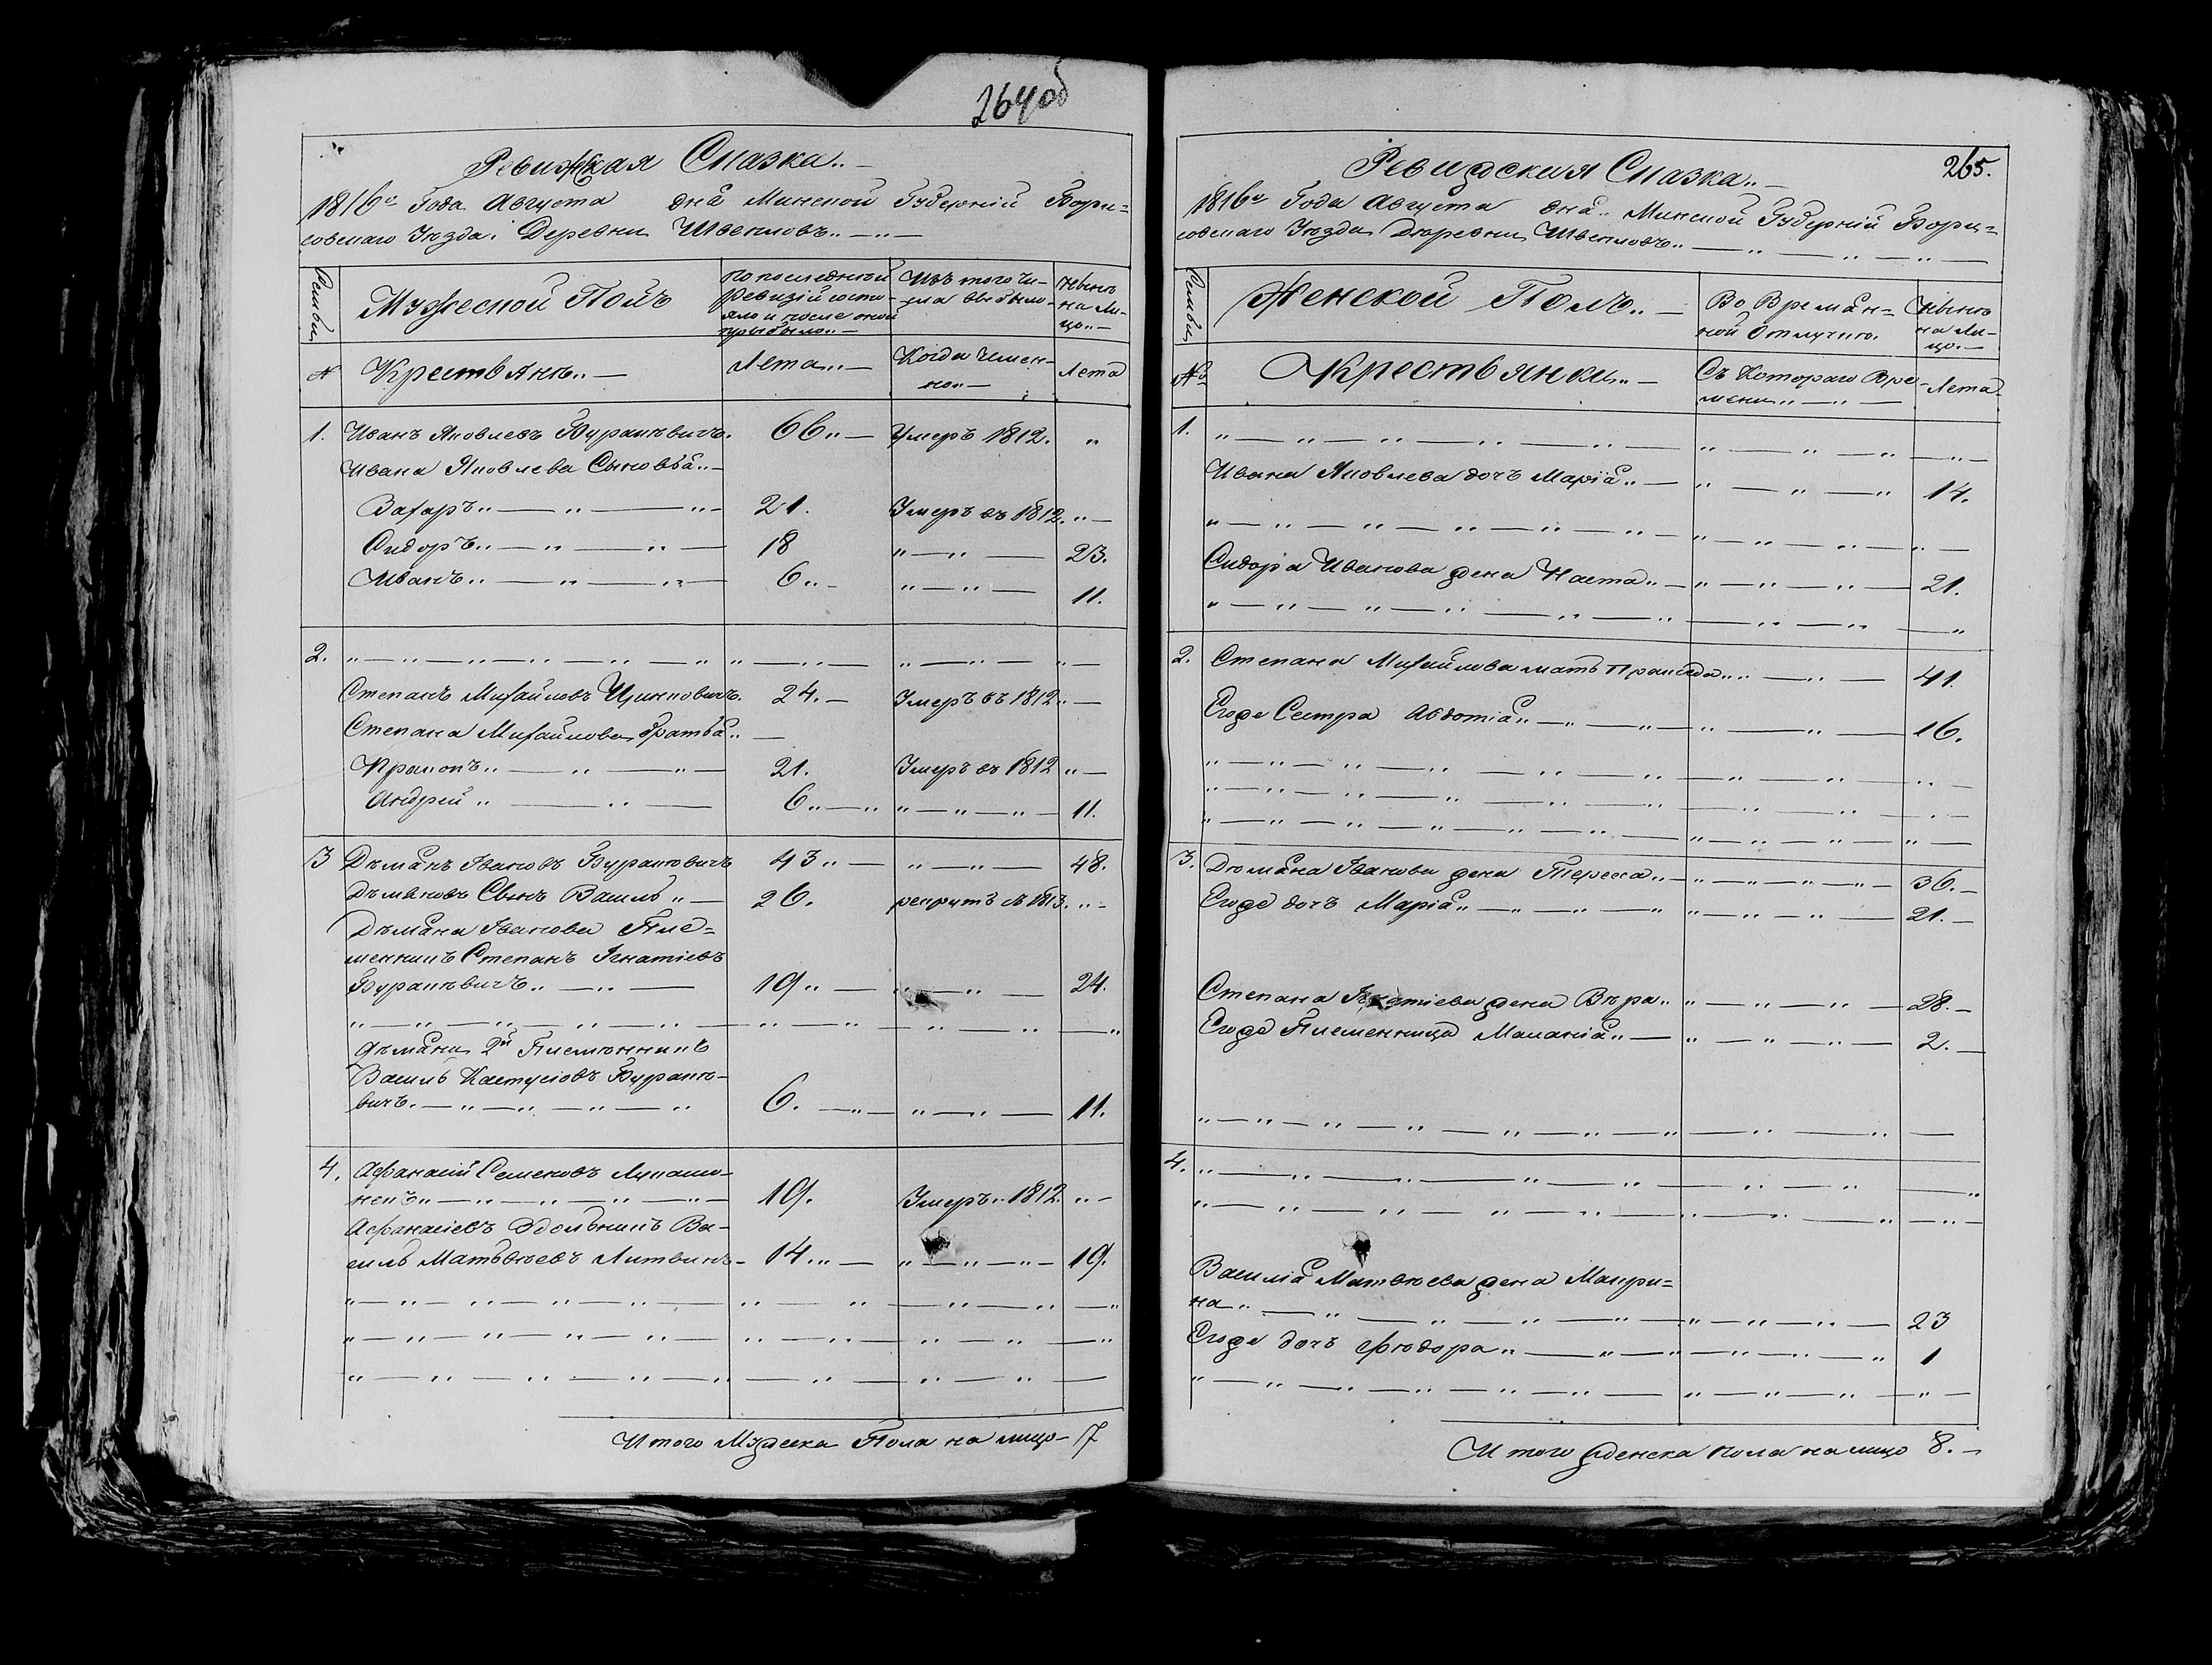 264об
Ревижская Сказка
1816го Года Августа дня Минской Губерніи Бори=
совскаго Уезда Деревни
Семьи
Мужеской Полъ
По последней
Ревизіи состо-
яло и после оной
прибыло
Изъ того чи-
сла выбыло
Ныне
на ли-
цо
№
Крестьяне
Лета
Когда имен-
но
Лета
1. Иванъ Яковлевъ 66 Умеръ 1812.
Ивана Яковлева Сыновья
Захаръ 21. Умеръ въ 1812.
Сидоръ 18 23.
Иванъ 6 11.
2.
Степанъ Михайловъ 24. Умеръ въ 1812
Степана Михайлова братья
21. Умеръ въ 1812
Андрей 6 11.
3 Демянъ Ивановъ 43 48.
Демяновъ Сынъ Василь 26. рекрутъ въ 1813.
Демяна Иванова Пле=
менникъ Степанъ Игнатіевъ
19 24.
Демяна 2й Племянникъ
Василь Кастусіовъ
вичъ. 6. 11.
4. Афанасій Семеновъ
19. Умеръ 1812
Ва-
силь Матьвеевъ Литвинъ 14 19.
Итого Мужеска Пола на лицо 7
265.
Ревизская Сказка
1816го Года Августа дня Минской Губерніи Бори=
совскаго Уезда Деревни
Семьи
Женской Полъ
Во Времян=
ной Отлучке
Ныне
на ли-
цо
№
Крестьянки
Съ Котораго Вре-
мени
Лета
1.
Ивана Яковлева дочь Марія 14.
Сидора Иванова жена Наста 21.
2. Степана Михайлова мать 41.
Егоже Сестра Авдотія 16.
3. Демяна Иванова жена Тересса 36.
Егоже дочь Марія 21.
Степана Игнатіева жена Вера 28.
Егоже Племенница Маланія 2.
4.
Василія Матвеева жена Маври=
на 23
Егоже дочь Федора 1
Итого женска пола на лицо 8.